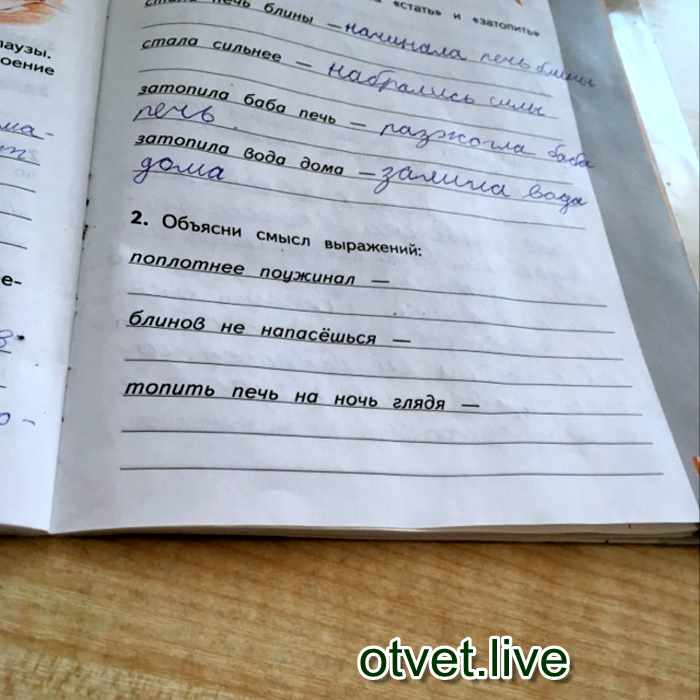 «стать» и «затопить»
стала печь блины – начинала печь блины
стала сильнее – набрались силы
затопила баба печь – разжогла баба
печь
затопила вода дома – залила вода
дома
2. Объясни смысл выражений:
поплотнее поужинал –
блинов не напасёшься –
топить печь на ночь глядя –
паузы.
оение
ма-
т
е-
в
о -
otvet.live